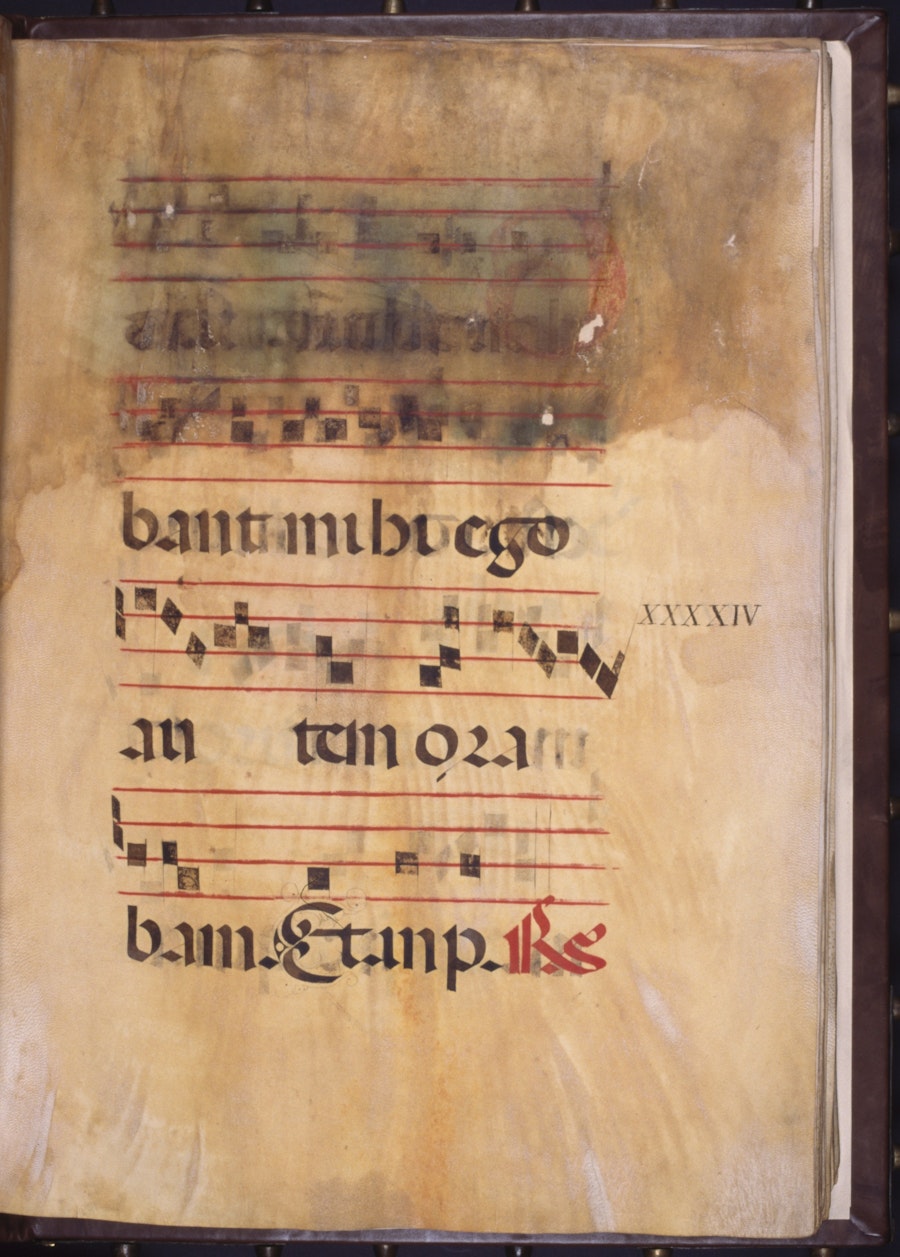 bant mihi ego
XXXXIV
au tem ora
bam. Et in p. Rs